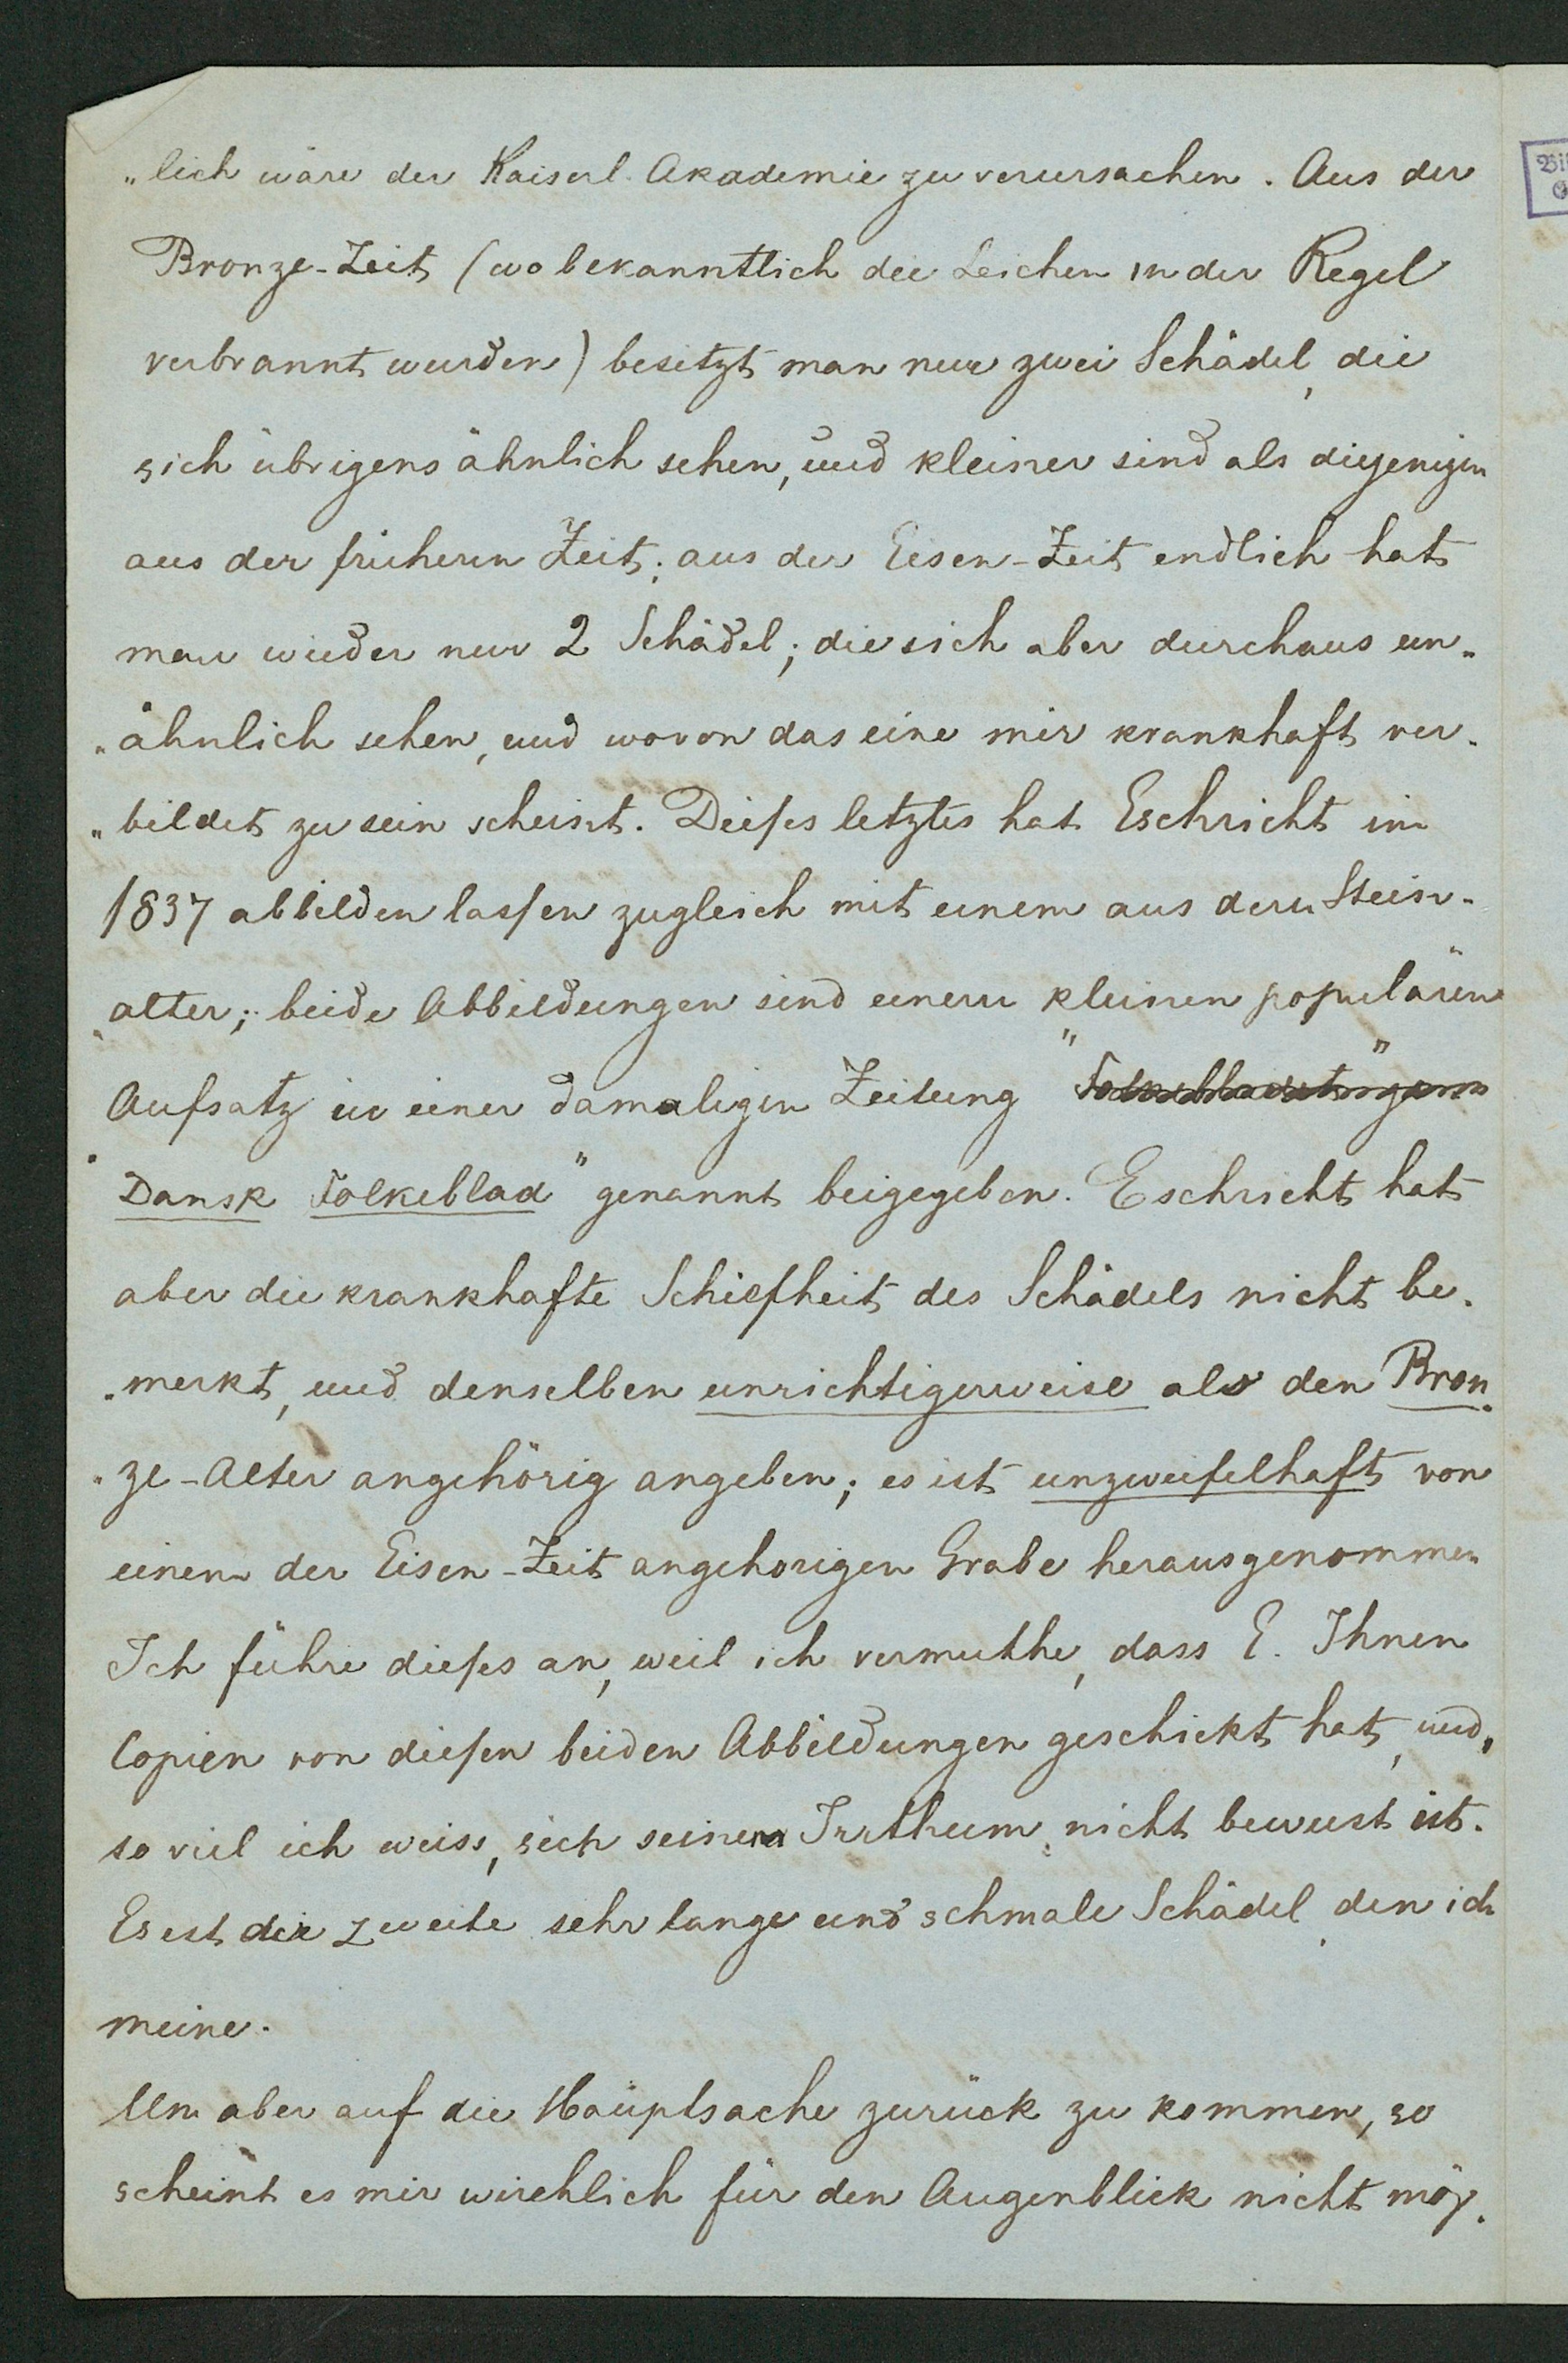 „lich wäre der Kaiserl. Akademie zu verursachen. Aus der
Bronze-Zeit (wo bekanntlich die Leichen in der Regel
verbrannt wurden) besitzt man nur zwei Schädel, die
sich übrigens ähnlich sehen, und kleiner sind als diejenigen
aus der früheren Zeit; aus der Eisen-Zeit endlich hat
man wieder nur 2 Schädel; die sich aber durchaus un„
„ähnlich sehen, und wovon das eine mir krankhaft ver„
„bildet zu sein scheint. Dieſes letztes hat Eschricht in
1837 abbilden lasſen zugleich mit einem aus dem Stein-
alter; beide Abbildungen sind einem kleinen populären
Aufsatz in einer damaligen Zeitung
"Dansk Folkeblad" genannt beigegeben. Eschricht hat
aber die krankhafte Schiefheit des Schädels nicht be„
„merkt, und denselben unrichtigerweise als den Bron„
„ze-Alter angehörig angeben; es ist unzweifelhaft von
einem der Eisen-Zeit angehorigen Grabe herausgenommen
Ich führe dieſes an, weil ich vermuthe, dass E. Ihnen
Copien von dieſen beiden Abbildungen geschickt hat, und,
so viel ich weiss, sich seinem Irrthum nicht bewust ist.
Es ist die zweite sehr lange und schmale Schädel, den ich
meine.
Um aber auf die Hauptsache zurück zu kommen, so
scheint es mir wirchlich für den Augenblick nicht mög„